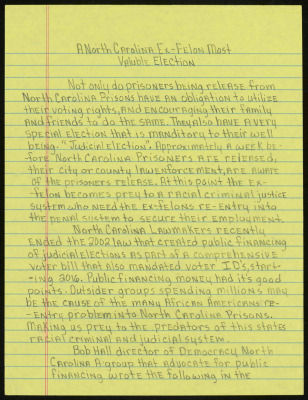 A North Carolina Ex-Felon Most
Valuble Election
Not only do prisoners being release from
North Carolina Prisons have an obligation to utilize
their voting rights, and encouraging their family
and friends to do the same. They also have a very
special election that is manditory to their well
being. "Judicial Election". Approximately a week be-
fore North Carolina Prisoners are released,
their city or county law enforcement, are aware
of the prisoners release. At this point the ex-
felon becomes prey to a racial criminal justice
system who need the ex-felons re-entry into
the penal system to secure their employment.
North Carolina Lawmakers recently
ended the 2002 law that created public financing
of judicial elections as part of a comprehensive
voter bill that also mandated voter ID's, start-
ing 2016. Public financing money had its good
points. Outsider groups spending millions may
be the cause of the many African Americans re-
-entry problem into North Carolina Prisons.
Making us prey to the predators of this states
racial criminal and judicial system.
Bob Hall director of Democracy North
Carolina A group that advocate for public
financing wrote the following in the